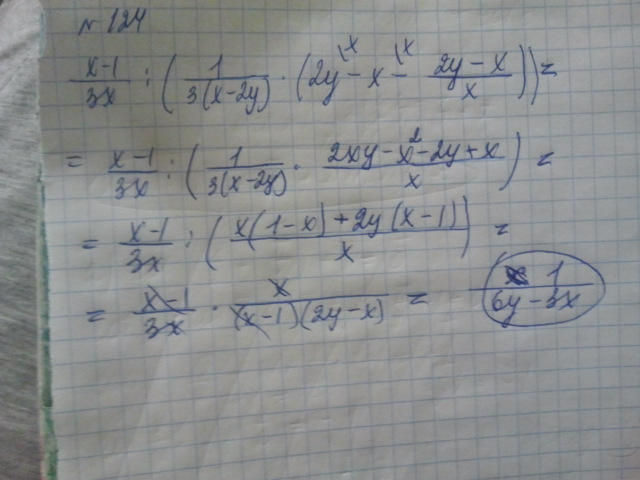 №124
\frac{x-1}{3x} : ( \frac{1}{3(x-2y)} · (2y^{\x} - x^{\x} - \frac{2y-x}{x})) =
= \frac{x-1}{3x} : ( \frac{1}{3(x-2y)} · \frac{2xy-x^2-2y+x}{x} ) =
= \frac{x-1}{3x} : ( \frac{x(1-x)+2y(x-1)}{x} ) =
= \frac{x-1}{3x} · \frac{x}{(x-1)(2y-x)} = \frac{1}{6y-3x}